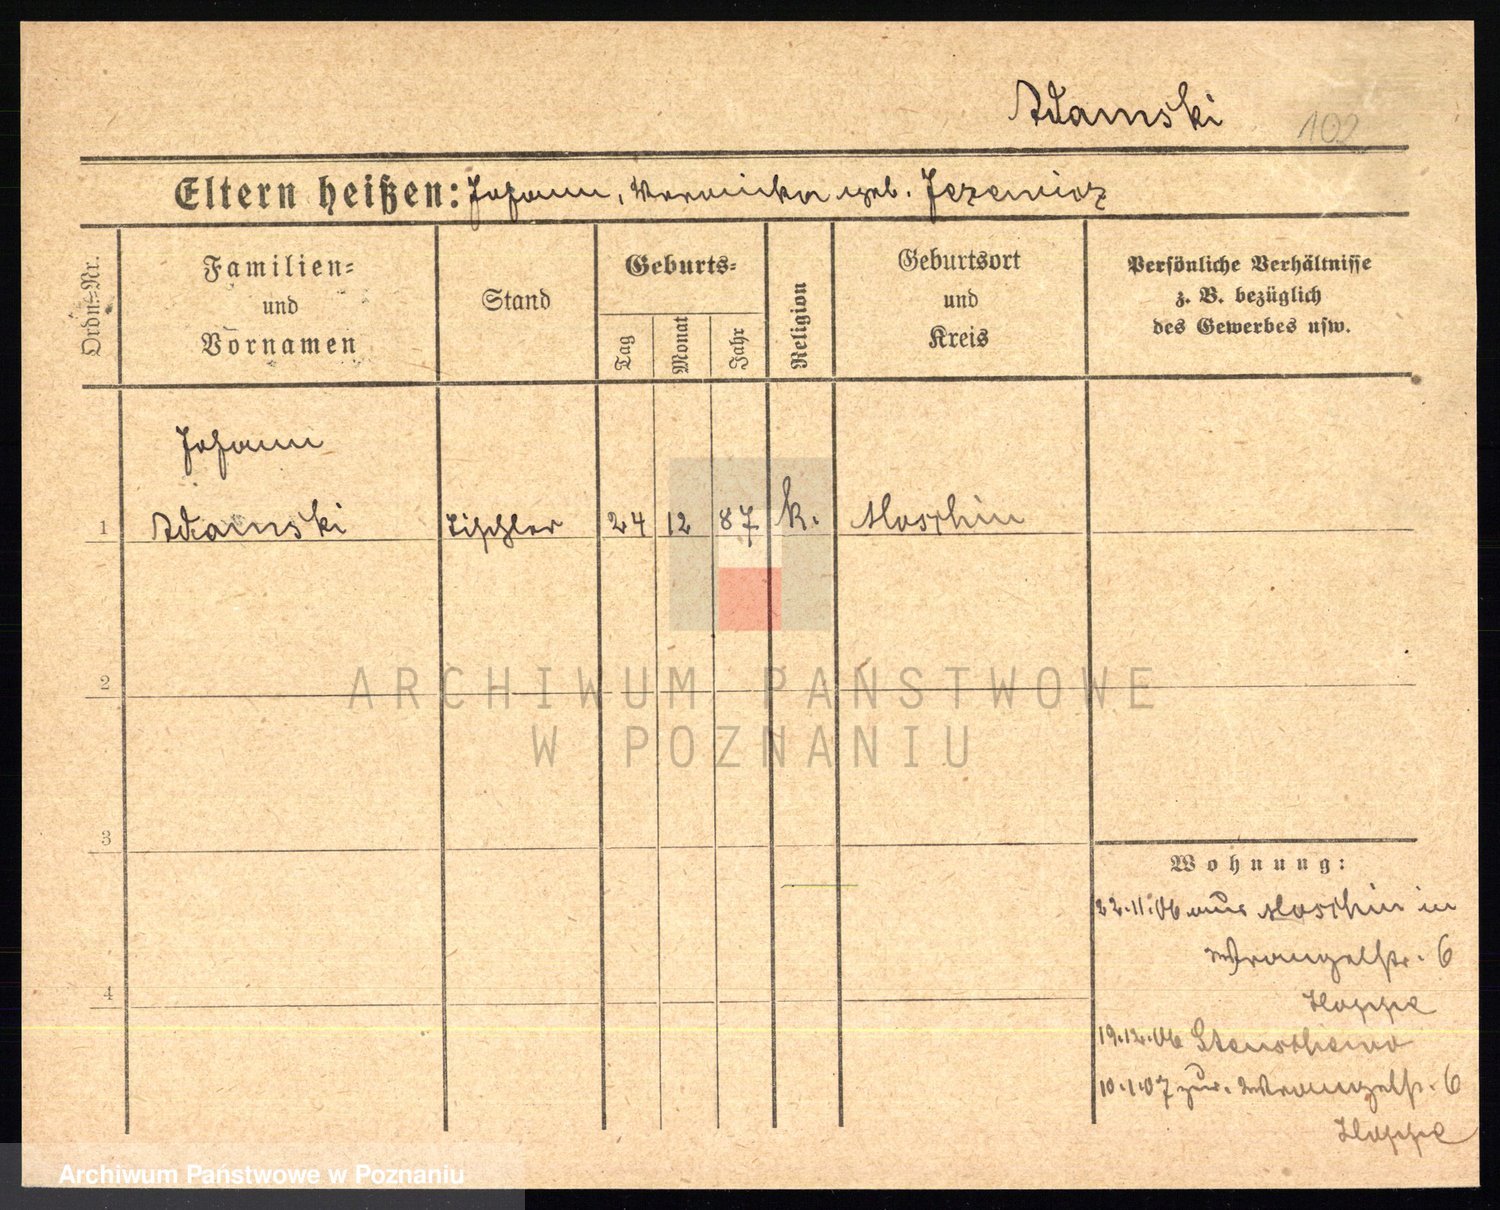 Adamski
102
Eltern heißen: Johann, Veronika geb. Jezewicz
Ordn.-Nr.
Familien-
und
Vornamen
Stand
Geburts-
Tag
Monat
Jahr
Religion
Geburtsort
und
Kreis
Persönliche Verhältnisse
z. B. bezüglich
des Gewerbes usw.
Johann
1 Adamski Tischler 24 12 87 k. Moschin
2
3
4
Wohnung:
22.11.06 aus Moschin in
Wrangelstr. 6
Hoppe
19.12.06 Stenschewo
10.1.07 zur. Wrangelstr. 6
Hoppe
ARCHIWUM PAŃSTWOWE
W POZNANIU
Archiwum Państwowe w Poznaniu